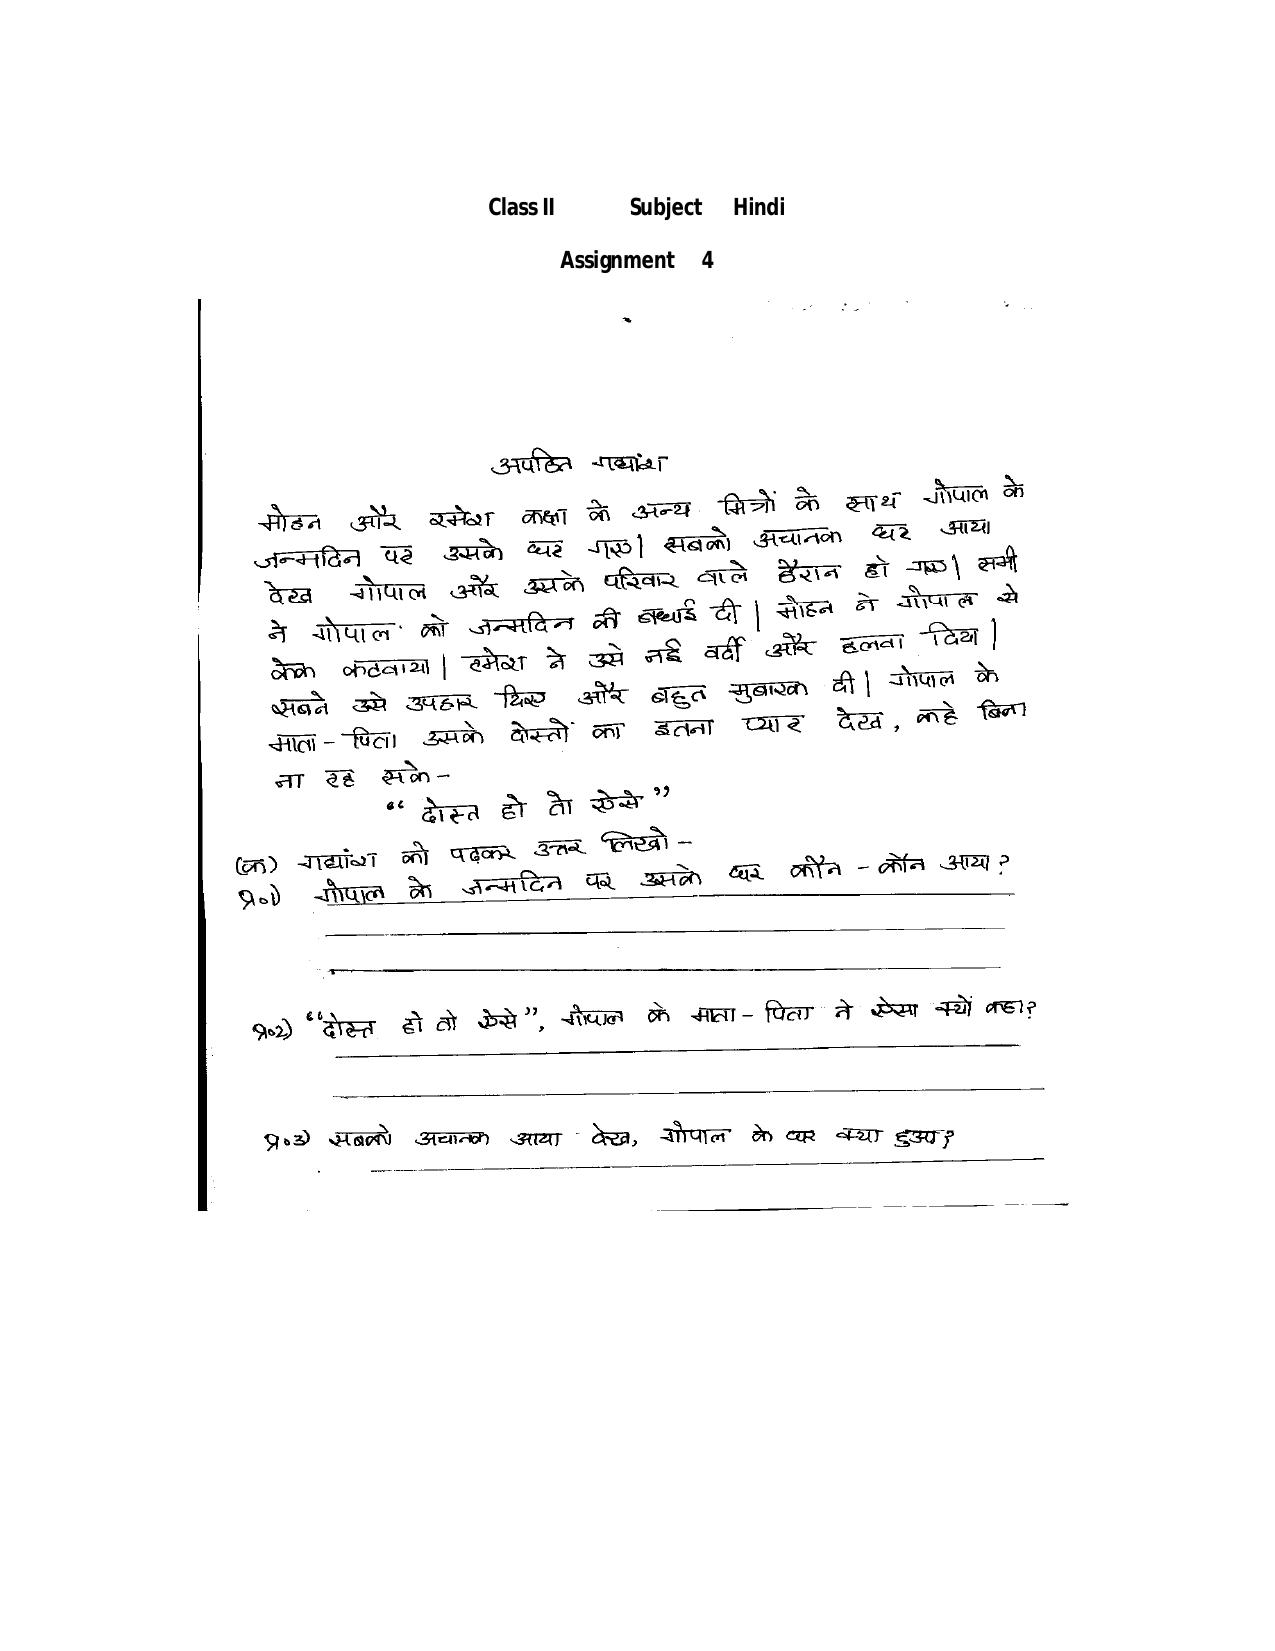 Class II Subject Hindi
Assignment 4
अपठित गद्यांश
मोहन और रमेश कक्षा के अन्य मित्रों के साथ गोपाल के
जन्मदिन पर उसके घर गए। सबको अचानक घर आया
देख गोपाल और उसके परिवार वाले हैरान हो गए। सभी
ने गोपाल को जन्मदिन की बधाई दी। मोहन ने गोपाल से
केक कटवाया। रमेश ने उसे नई वर्दी और हलवा दिया।
सबने उसे उपहार दिए और बहुत मुबारक दी। गोपाल के
माता-पिता उसके दोस्तों का इतना प्यार देख, कहे बिना
ना रह सके-
“दोस्त हो तो ऐसे”
(क) गद्यांश को पढ़कर उत्तर लिखो-
प्र०1) गोपाल के जन्मदिन पर उसके घर कौन-कौन आया?
प्र०2) “दोस्त हो तो ऐसे”, गोपाल के माता-पिता ने ऐसा क्यों कहा?
प्र०3) सबको अचानक आया देख, गोपाल के घर क्या हुआ?